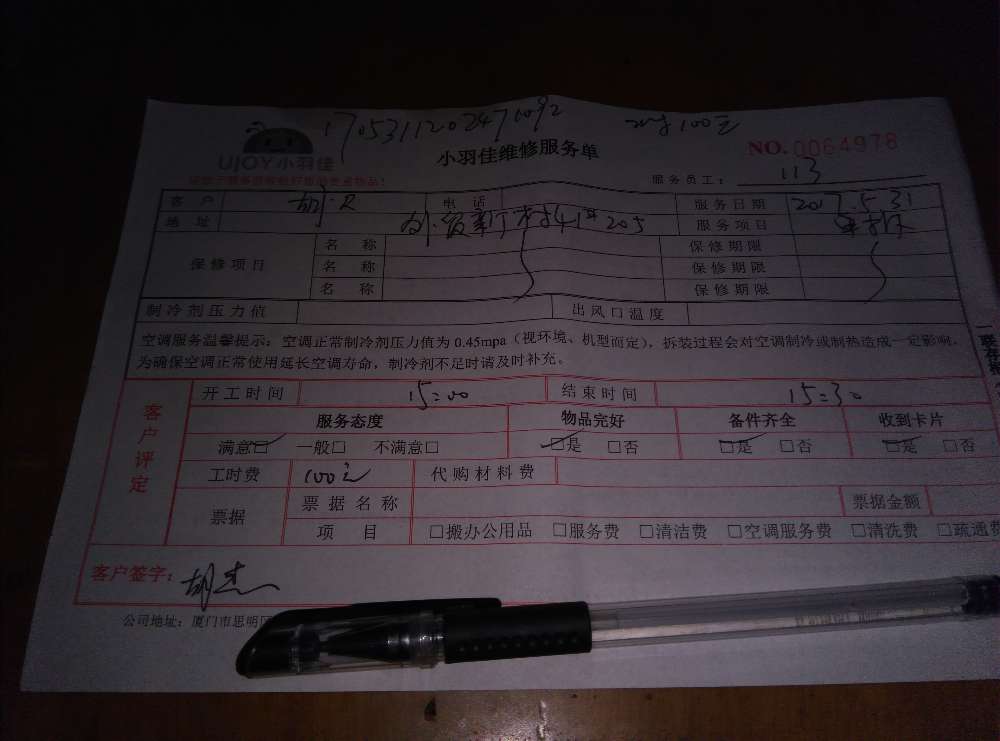 170531120247
100元
UJOY小羽佳
小羽佳维修服务单
NO.0064978
服务员工： 113
客户 电话 服务日期 2017.5.31
地址 村41 205 服务项目
保修项目 名称 保修期限
名称 保修期限
名称 保修期限
制冷剂压力值 出风口温度
空调服务温馨提示：空调正常制冷剂压力值为 0.45mpa（视环境、机型而定），拆装过程会对空调制冷或制热造成一定影响，
为确保空调正常使用延长空调寿命，制冷剂不足时请及时补充。
客户评定
开工时间 15:00 结束时间 15:30
服务态度 物品完好 备件齐全 收到卡片
满意☑ 一般□ 不满意□ ☑是 □否 ☑是 □否 ☑是 □否
工时费 100元 代购材料费
票据 票据名称 票据金额
项目 □搬办公用品 □服务费 □清洁费 □空调服务费 □清洗费 □疏通费
客户签字： 胡杰
公司地址：厦门市思明区